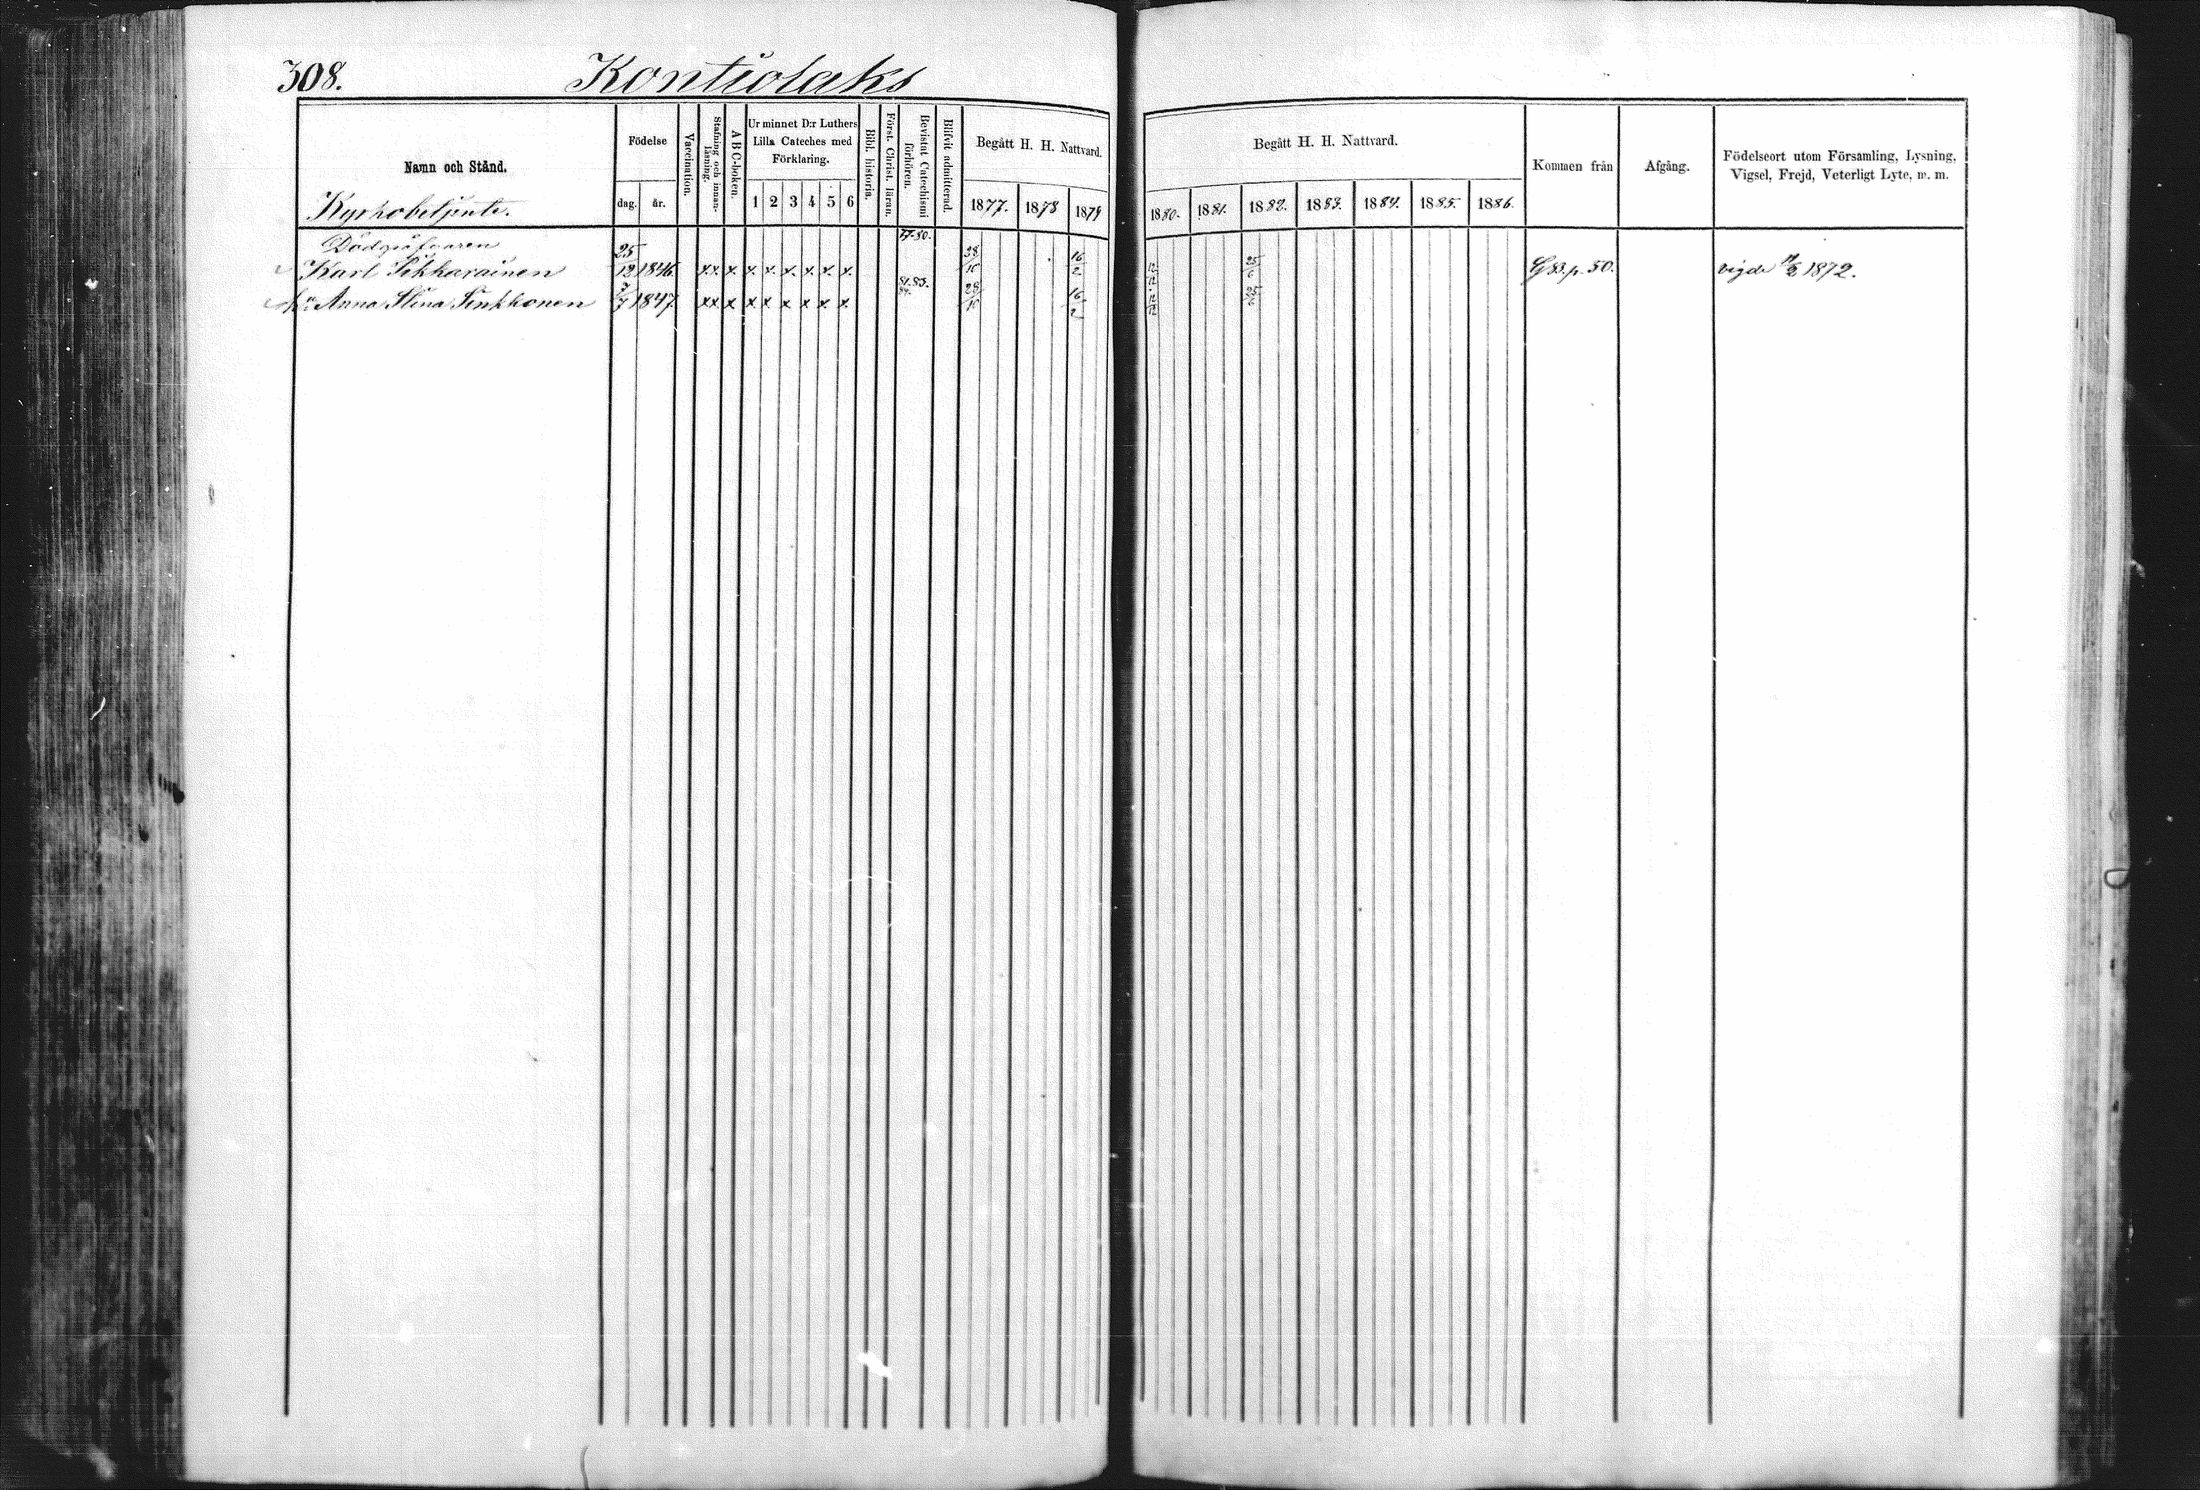 308.
Kontiolaks
Namn och Stånd.
Kyrkobetjente.
Födelse
dag. år.
Vaccination.
Stafning och innanläsning.
ABC-boken.
Ur minnet D:r Luthers
Lilla Cateches med
Förklaring.
1 2 3 4 5 6
Bibl. historia.
Först. Christ. läran.
Bevistat Catechismi
förhören.
Blifvit admitterad.
Begått H. H. Nattvard.
1877. 1878 1879
Begått H. H. Nattvard.
1880. 1881. 1882. 1883. 1884. 1885. 1886.
Kommen från
Afgång.
Födelseort utom Församling, Lysning,
Vigsel, Frejd, Veterligt Lyte, m. m.
Dödgräfvaren 77-80.
Karl Pikkarainen 25/12 1846. x x x x x x x x x 28/10 16/2 12/12 25/6 G 83. p. 50. vigde 1872.
Anna Stina Sinkkonen 1847. x x x x x x x x x 81.83. 28/10 16/2 12/12 25/6